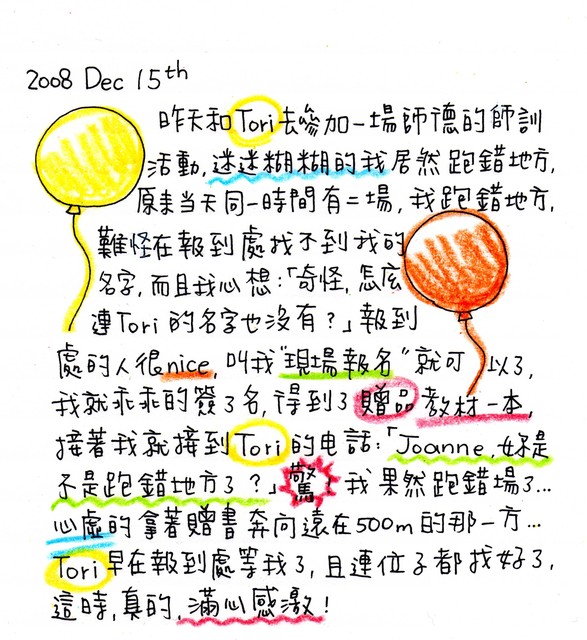 2008 Dec 15th
昨天和Tori去參加一場師德的師訓
活動,迷迷糊糊的我居然跑錯地方,
原來當天同一時間有二場,我跑錯地方,
難怪在報到處找不到我的
名字,而且我心想:「奇怪,怎麼
連Tori的名字也沒有?」報到
處的人很nice,叫我"現場報名"就可以了,
我就乖乖的簽了名,得到了贈品教材一本,
接著我就接到Tori的电話:「Joanne,妳是
不是跑錯地方了?」驚!我果然跑錯場了...
心虛的拿著贈書奔向遠在500m的那一方...
Tori早在報到處等我了,且連位子都找好了,
這時,真的,滿心感激!